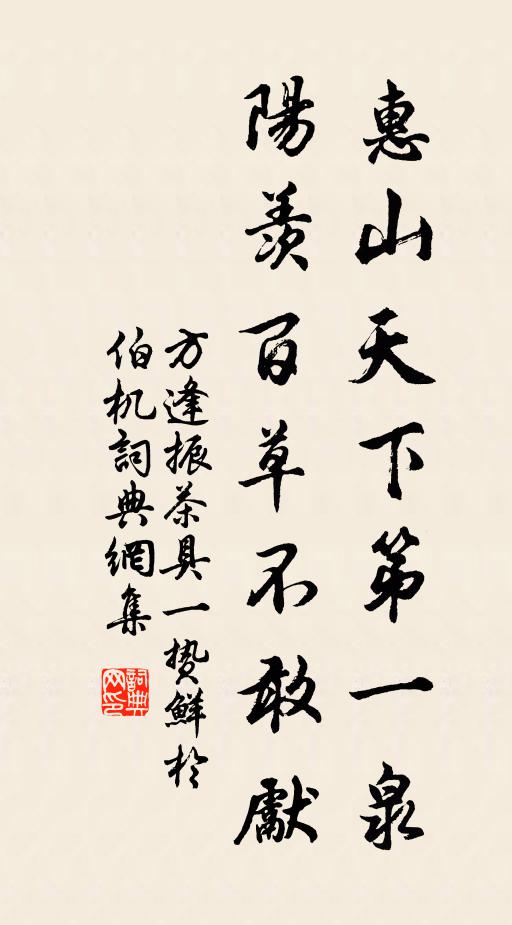 惠山天下第一泉
陽羨百草不敢獻
方逢振茶具一贄鮮於
伯机詞典網集
詞典网印